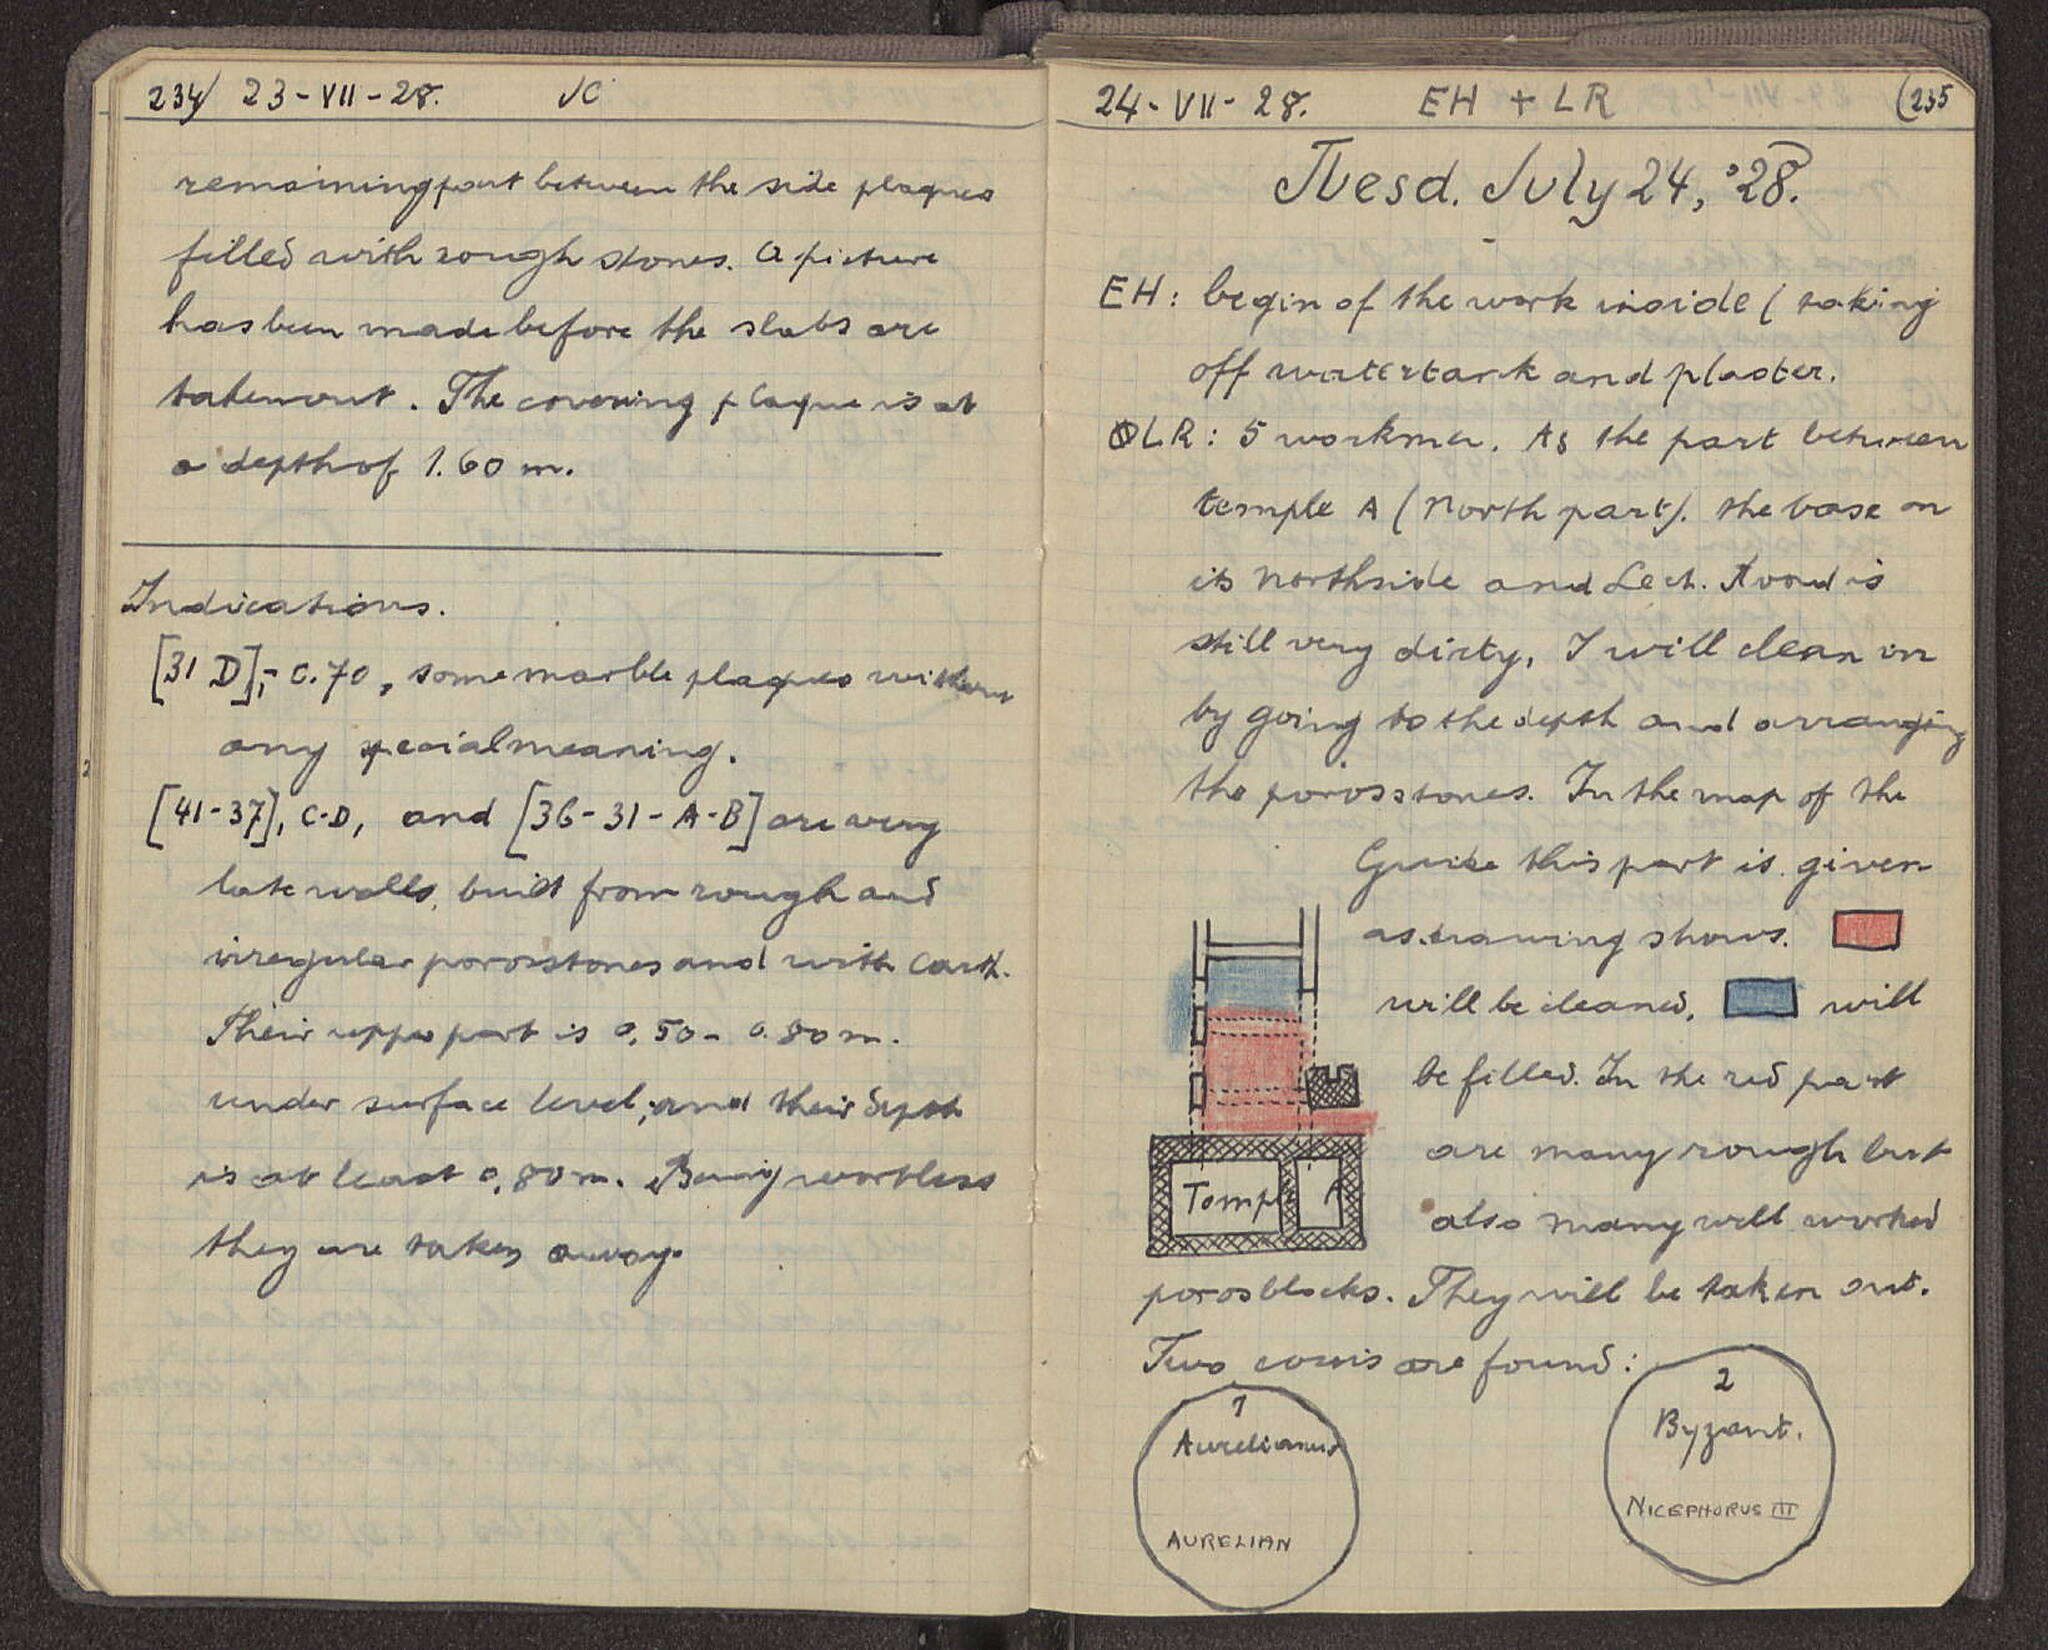 234/ 23-VII-28. JC
remaining part between the side plaques
filled with rough stones. A picture
has been made before the slabs are
taken out. The covering plaque is at
a depth of 1.60 m.
Indications.
[31 D],- 0.70, some marble plaques without
any special meaning.
[41-37], C-D, and [36-31-A-B] are very
late walls, built from rough and
irregular porosstones and with earth.
Their upper part is 0,50- 0.80 m.
under surface level, and their depth
is at least 0,80 m. Being wortless
they are taken away.
24-VII-28. EH + LR (235
Tuesd. July 24, '28.
EH: begin of the work inside ( taking
off watertank and plaster.
LR: 5 workmen. As the part between
temple A (North part). the base on
its northside and Lech. Road is
still very dirty, I will clean in
by going to the depth and arranging
the porosstones. In the map of the
Guide this part is given
as drawing shows.
will be cleaned, will
be filled. In the red part
are many rough but
also many well worked
Temple A
porosblocks. They will be taken out.
Two coins are found:
1
Aurelianus
AURELIAN
2
Byzant.
NICEPHORUS III